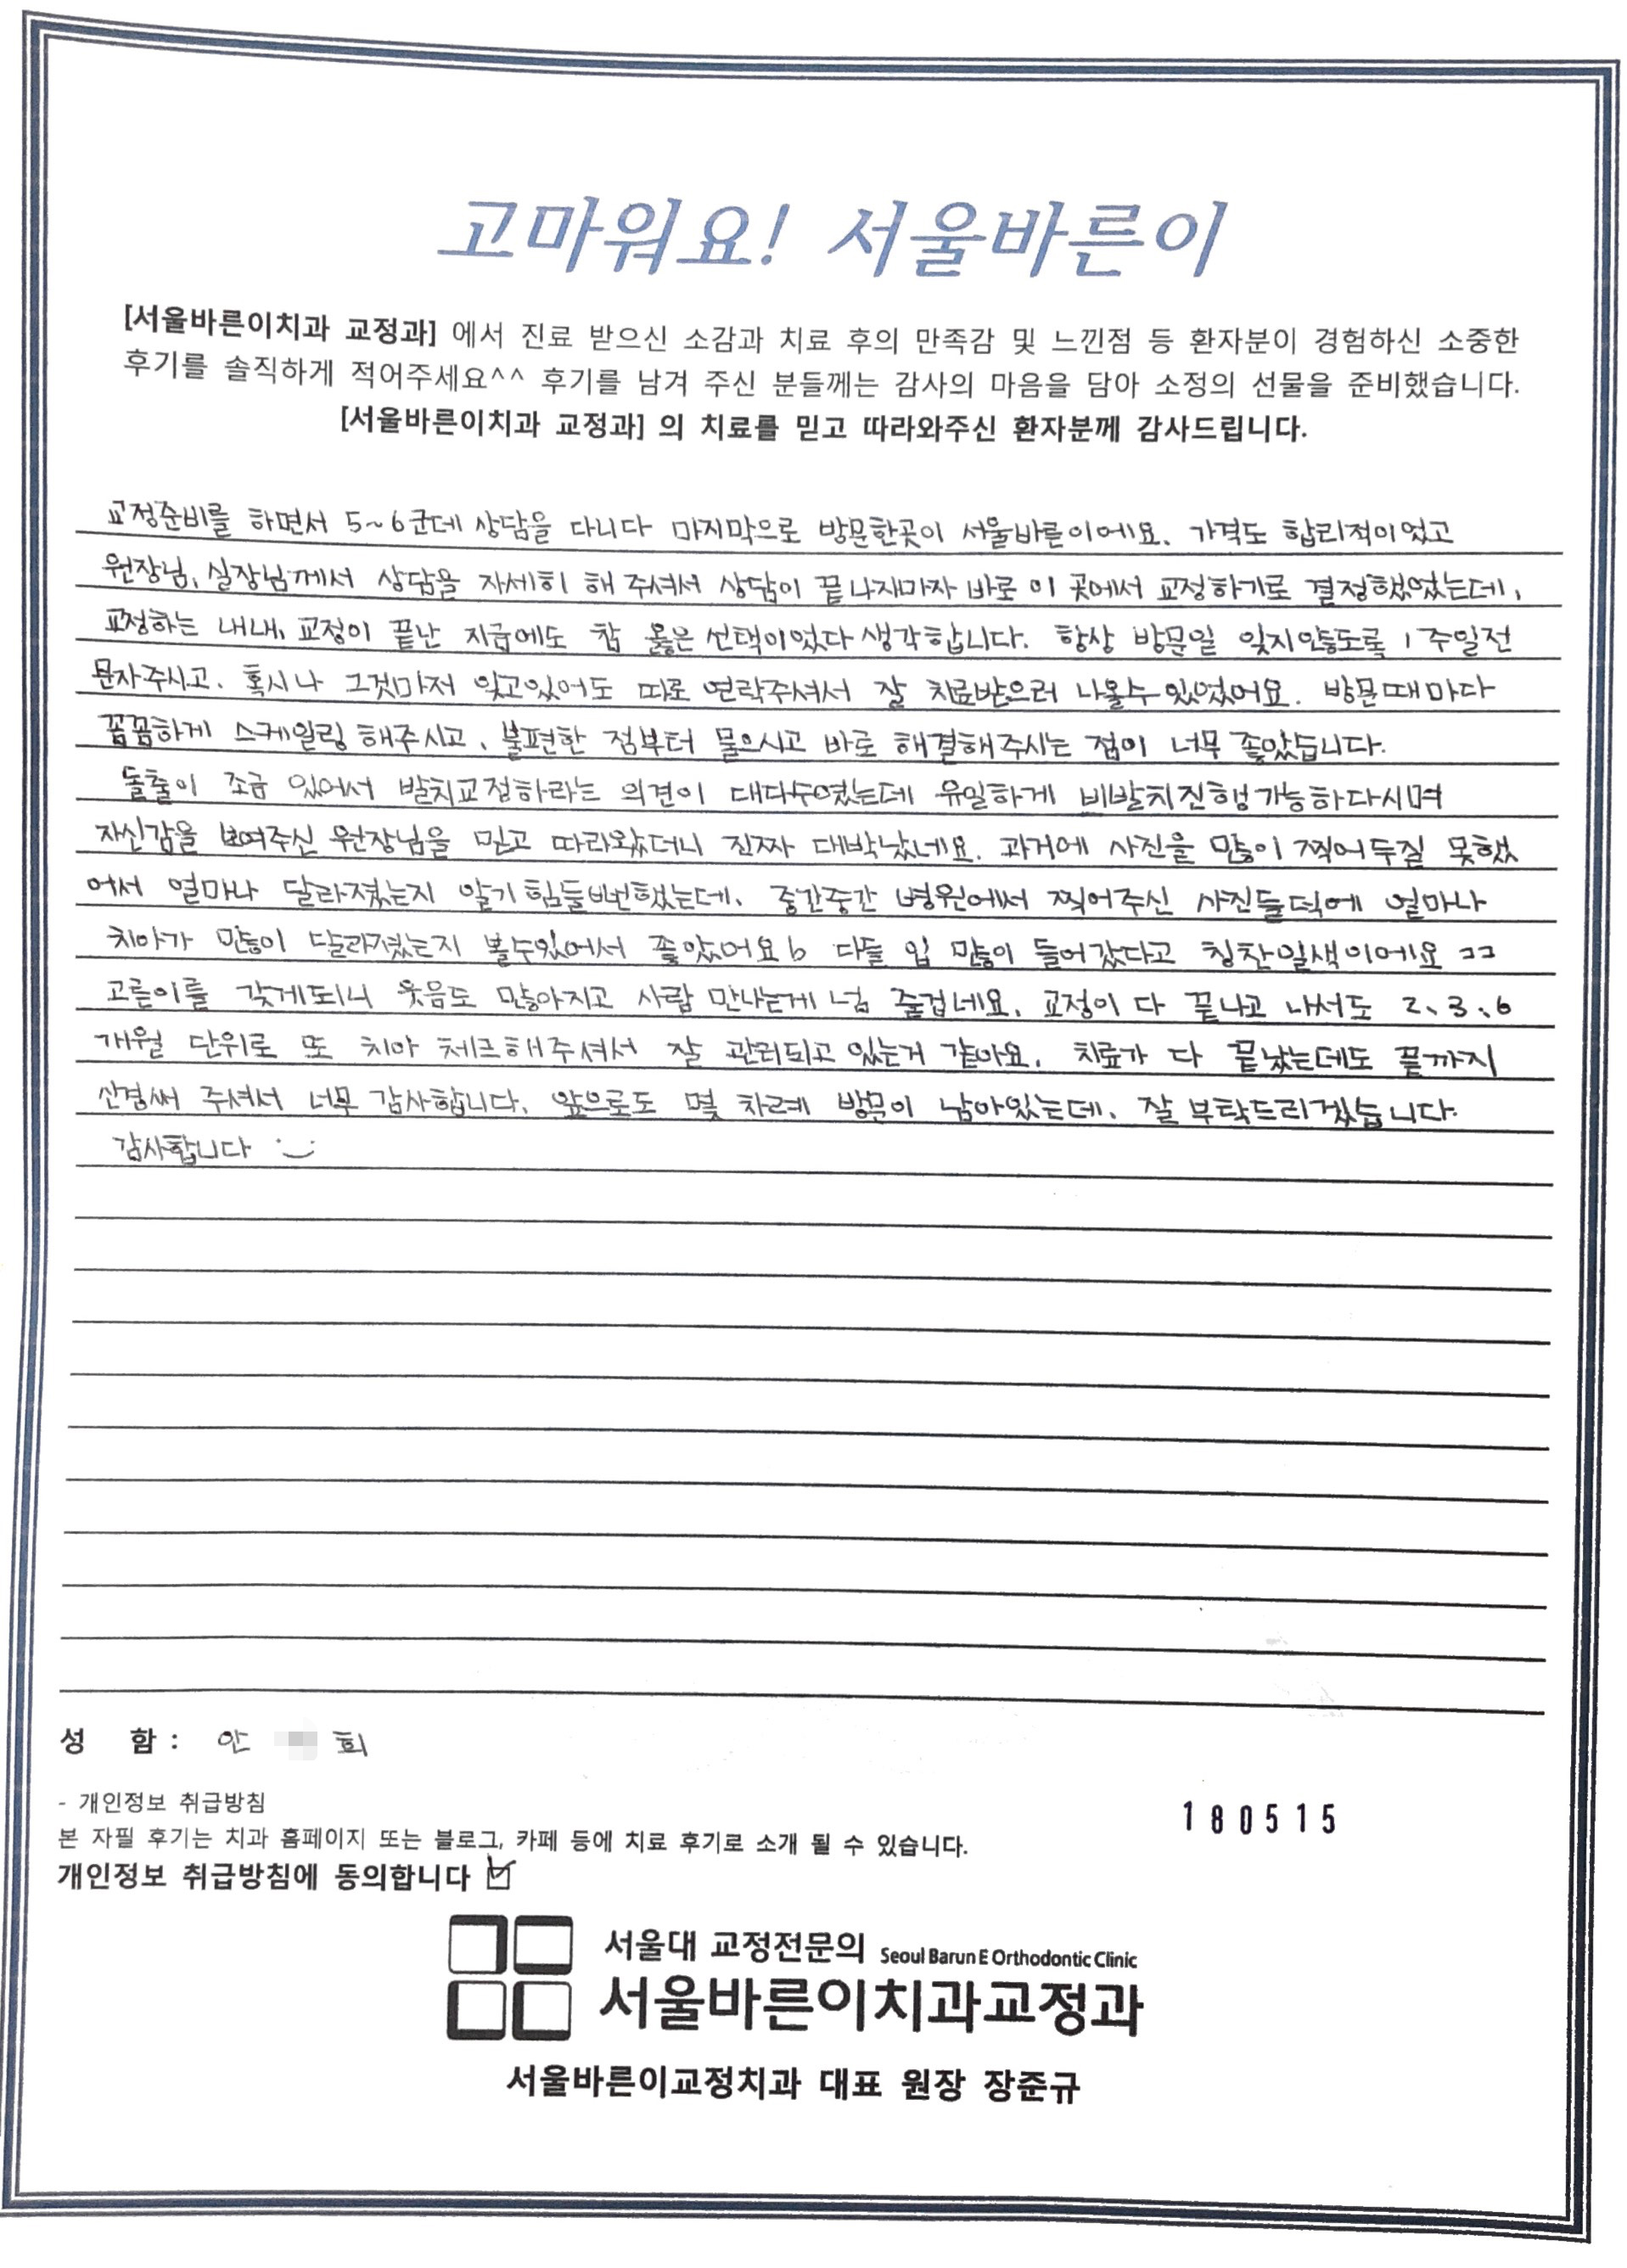 고마워요! 서울바른이
[서울바른이치과 교정과] 에서 진료 받으신 소감과 치료 후의 만족감 및 느낀점 등 환자분이 경험하신 소중한
후기를 솔직하게 적어주세요^^ 후기를 남겨 주신 분들께는 감사의 마음을 담아 소정의 선물을 준비했습니다.
[서울바른이치과 교정과] 의 치료를 믿고 따라와주신 환자분께 감사드립니다.
교정준비를 하면서 5~6군데 상담을 다니다 마지막으로 방문한곳이 서울바른이에요. 가격도 합리적이었고
원장님, 실장님께서 상담을 자세히 해 주셔서 상담이 끝나자마자 바로 이 곳에서 교정하기로 결정했었는데,
교정하는 내내, 교정이 끝난 지금에도 참 옳은 선택이었다 생각합니다. 항상 방문일 잊지않도록 1주일전
문자주시고, 혹시나 그것마저 잊고있어도 따로 연락주셔서 잘 치료받으러 나올수 있었어요. 방문때마다
꼼꼼하게 스케일링 해주시고, 불편한 점부터 물으시고 바로 해결해주시는 점이 너무 좋았습니다.
돌출이 조금 있어서 발치교정하라는 의견이 대다수였는데 유일하게 비발치진행가능하다시며
자신감을 보여주신 원장님을 믿고 따라왔더니 진짜 대박났네요. 과거에 사진을 많이 찍어두질 못했
어서 얼마나 달라졌는지 알기 힘들뻔했는데, 중간중간 병원에서 찍어주신 사진들덕에 얼마나
치아가 많이 달라졌는지 볼수있어서 좋았어요b 다들 입 많이 들어갔다고 칭찬일색이에요 ㅋㅋ
고른이를 갖게되니 웃음도 많아지고 사람 만나는게 넘 즐겁네요. 교정이 다 끝나고 나서도 2、3、6
개월 단위로 또 치아 체크해주셔서 잘 관리되고 있는거 같아요. 치료가 다 끝났는데도 끝까지
신경써 주셔서 너무 감사합니다. 앞으로도 몇 차례 방문이 남아있는데, 잘 부탁드리겠습니다.
감사합니다 :)
성 함 : 안 희
- 개인정보 취급방침
본 자필 후기는 치과 홈페이지 또는 블로그, 카페 등에 치료 후기로 소개 될 수 있습니다.
180515
개인정보 취급방침에 동의합니다
서울대 교정전문의 Seoul Barun E Orthodontic Clinic
서울바른이치과교정과
서울바른이교정치과 대표 원장 장준규